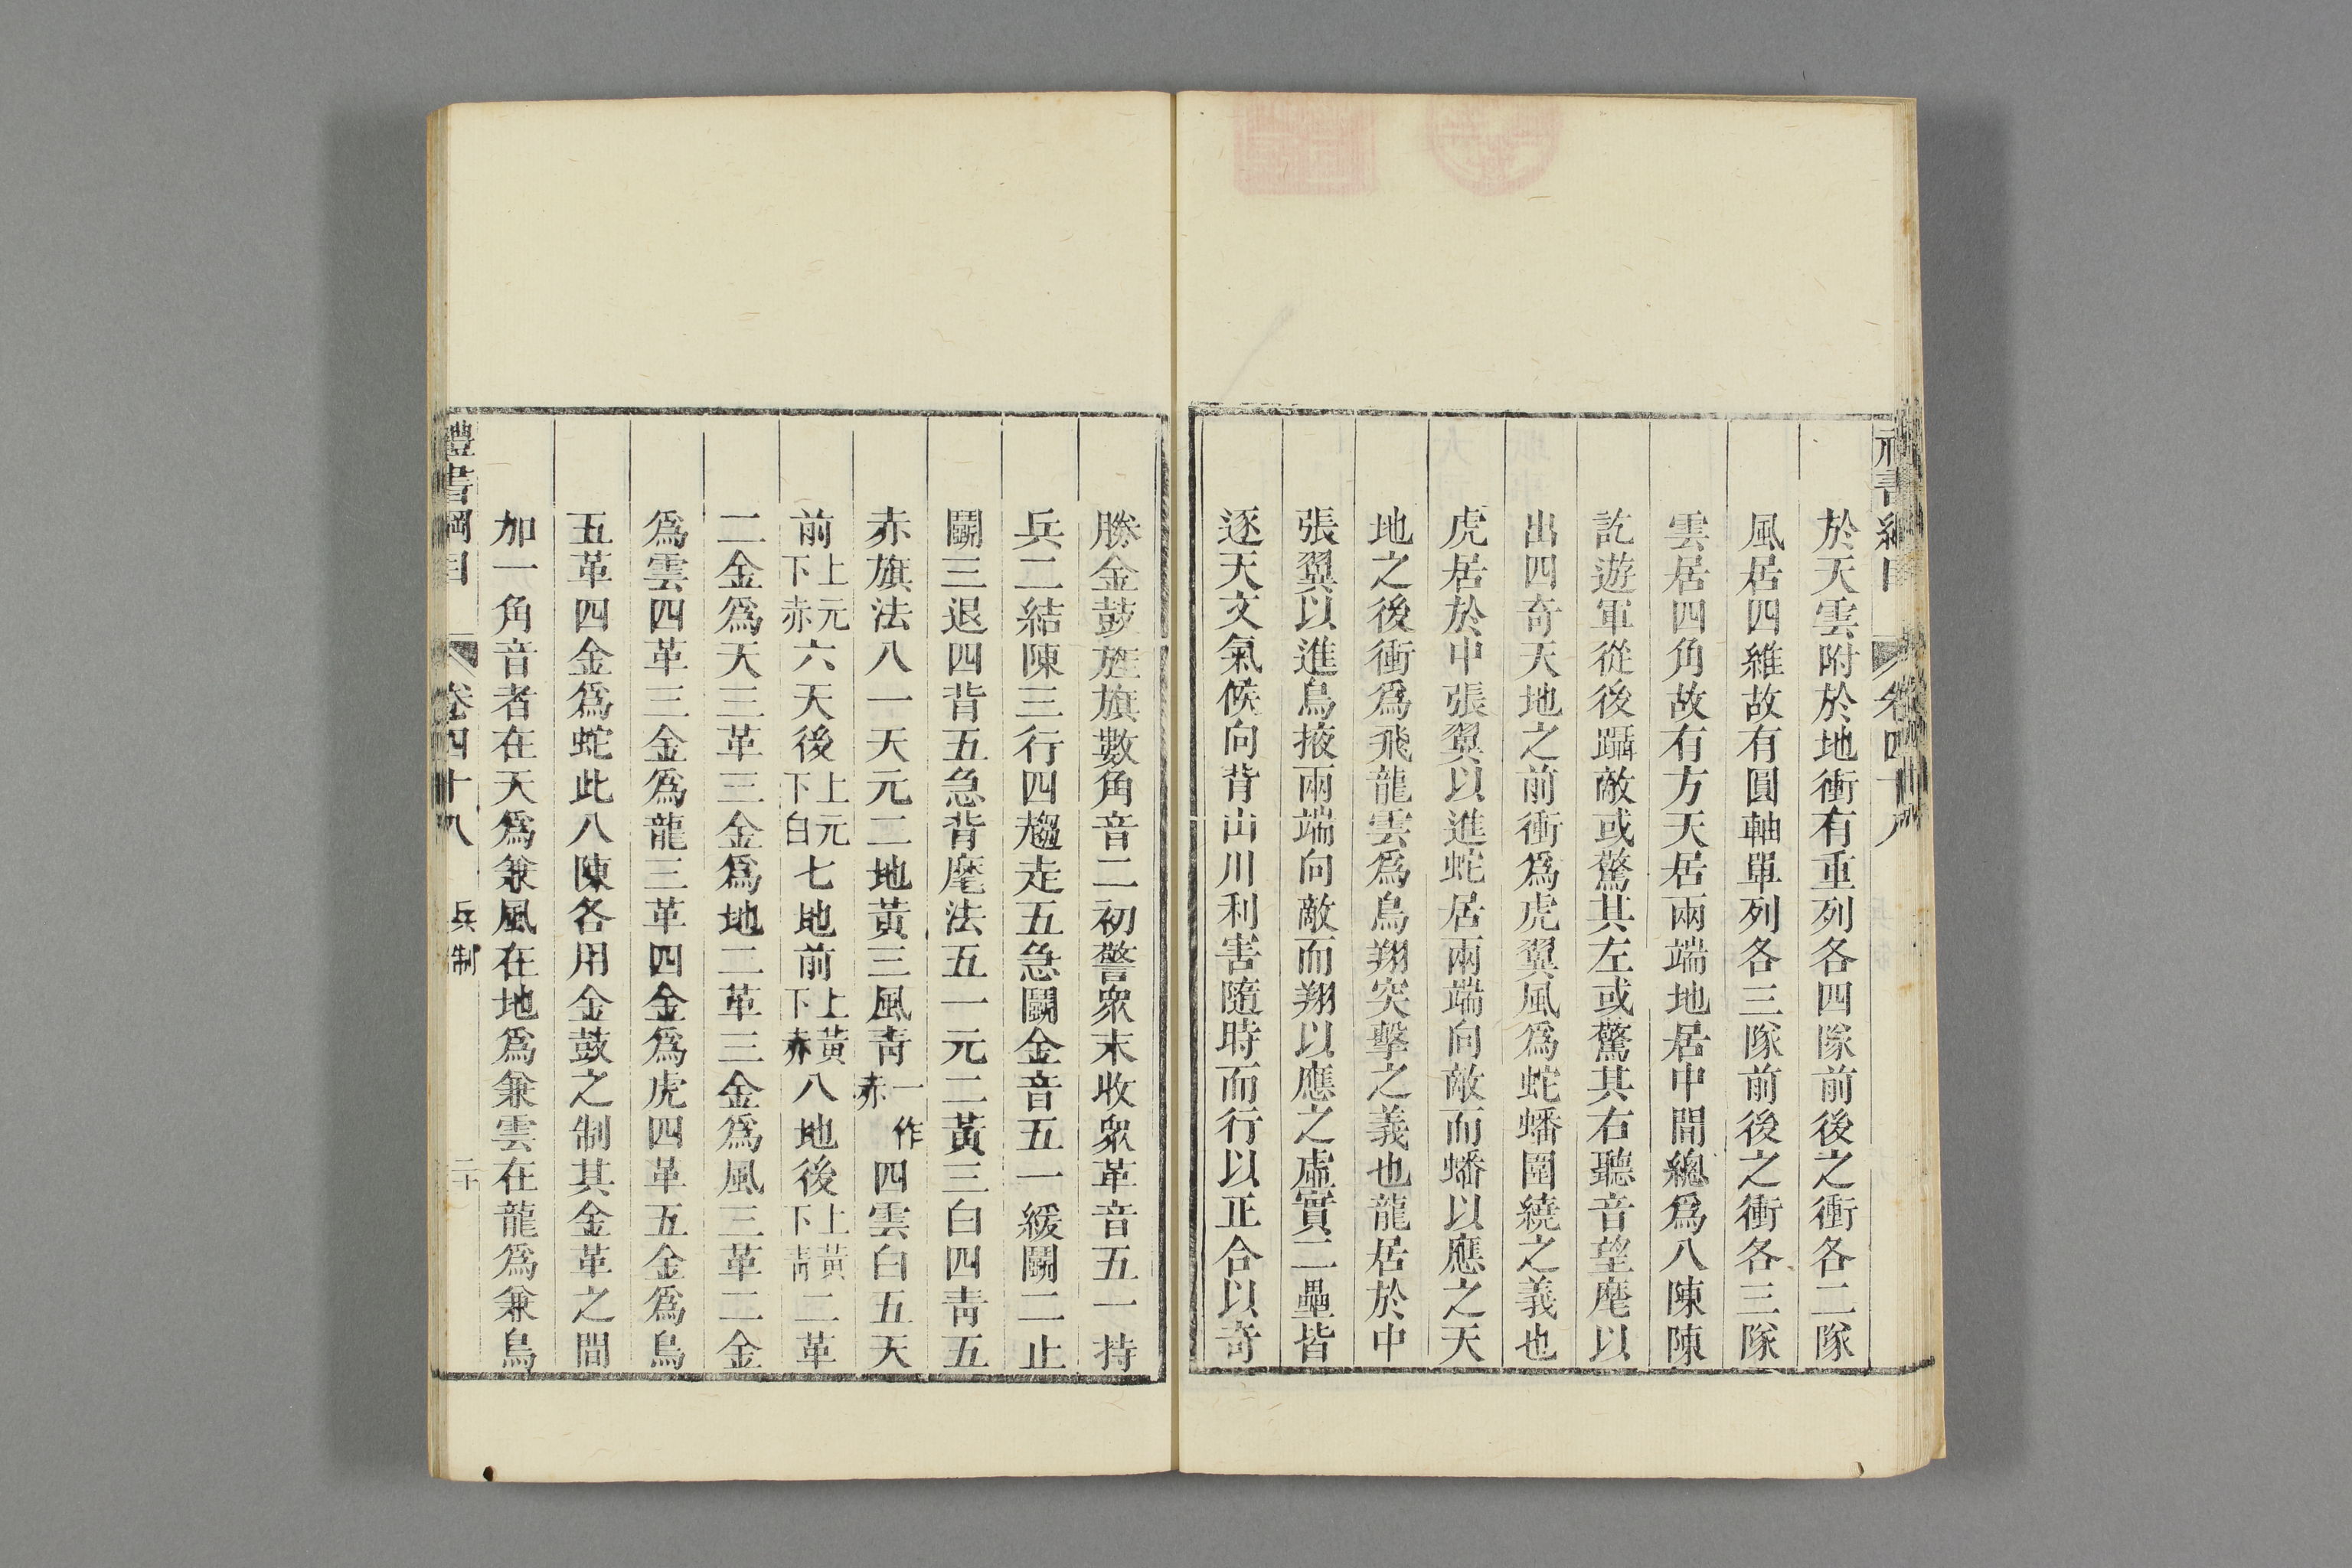 於天雲附於地衝有重列各四隊前後之衝各二隊
風居四維故有圓軸單列各三隊前後之衝各三隊
雲居四角故有方天居兩端地居中間總爲八陳陳
訖遊軍從後躡敵或驚其左或驚其右聽音望麾以
出四奇天地之前衝爲虎翼風爲蛇蟠圍繞之義也
虎居於中張翼以進蛇居兩端向敵而蟠以應之天
地之後衝爲飛龍雲爲鳥翔突擊之義也龍居於中
張翼以進鳥掖兩端向敵而翔以應之虛實二壘皆
逐天文氣候向背山川利害隨時而行以正合以奇
勝金鼓旌旗數角音二初警衆末收衆革音五一持
兵二結陳三行四趨走五急鬭金音五一緩鬭二止
鬭三退四背五急背麾法五一元二黃三白四靑五
赤旗法八一天元二地黃三風靑一作赤四雲白五天
前上元下赤六天後上元下白七地前上黃下赤八地後上黃下靑二革
二金爲天三革三金爲地二革三金爲風三革二金
爲雲四革三金爲龍三革四金爲虎四革五金爲鳥
五革四金爲蛇此八陳各用金鼓之制其金革之間
加一角音者在天爲兼風在地爲兼雲在龍爲兼鳥
禮書綱目 卷四十八 兵制 二十